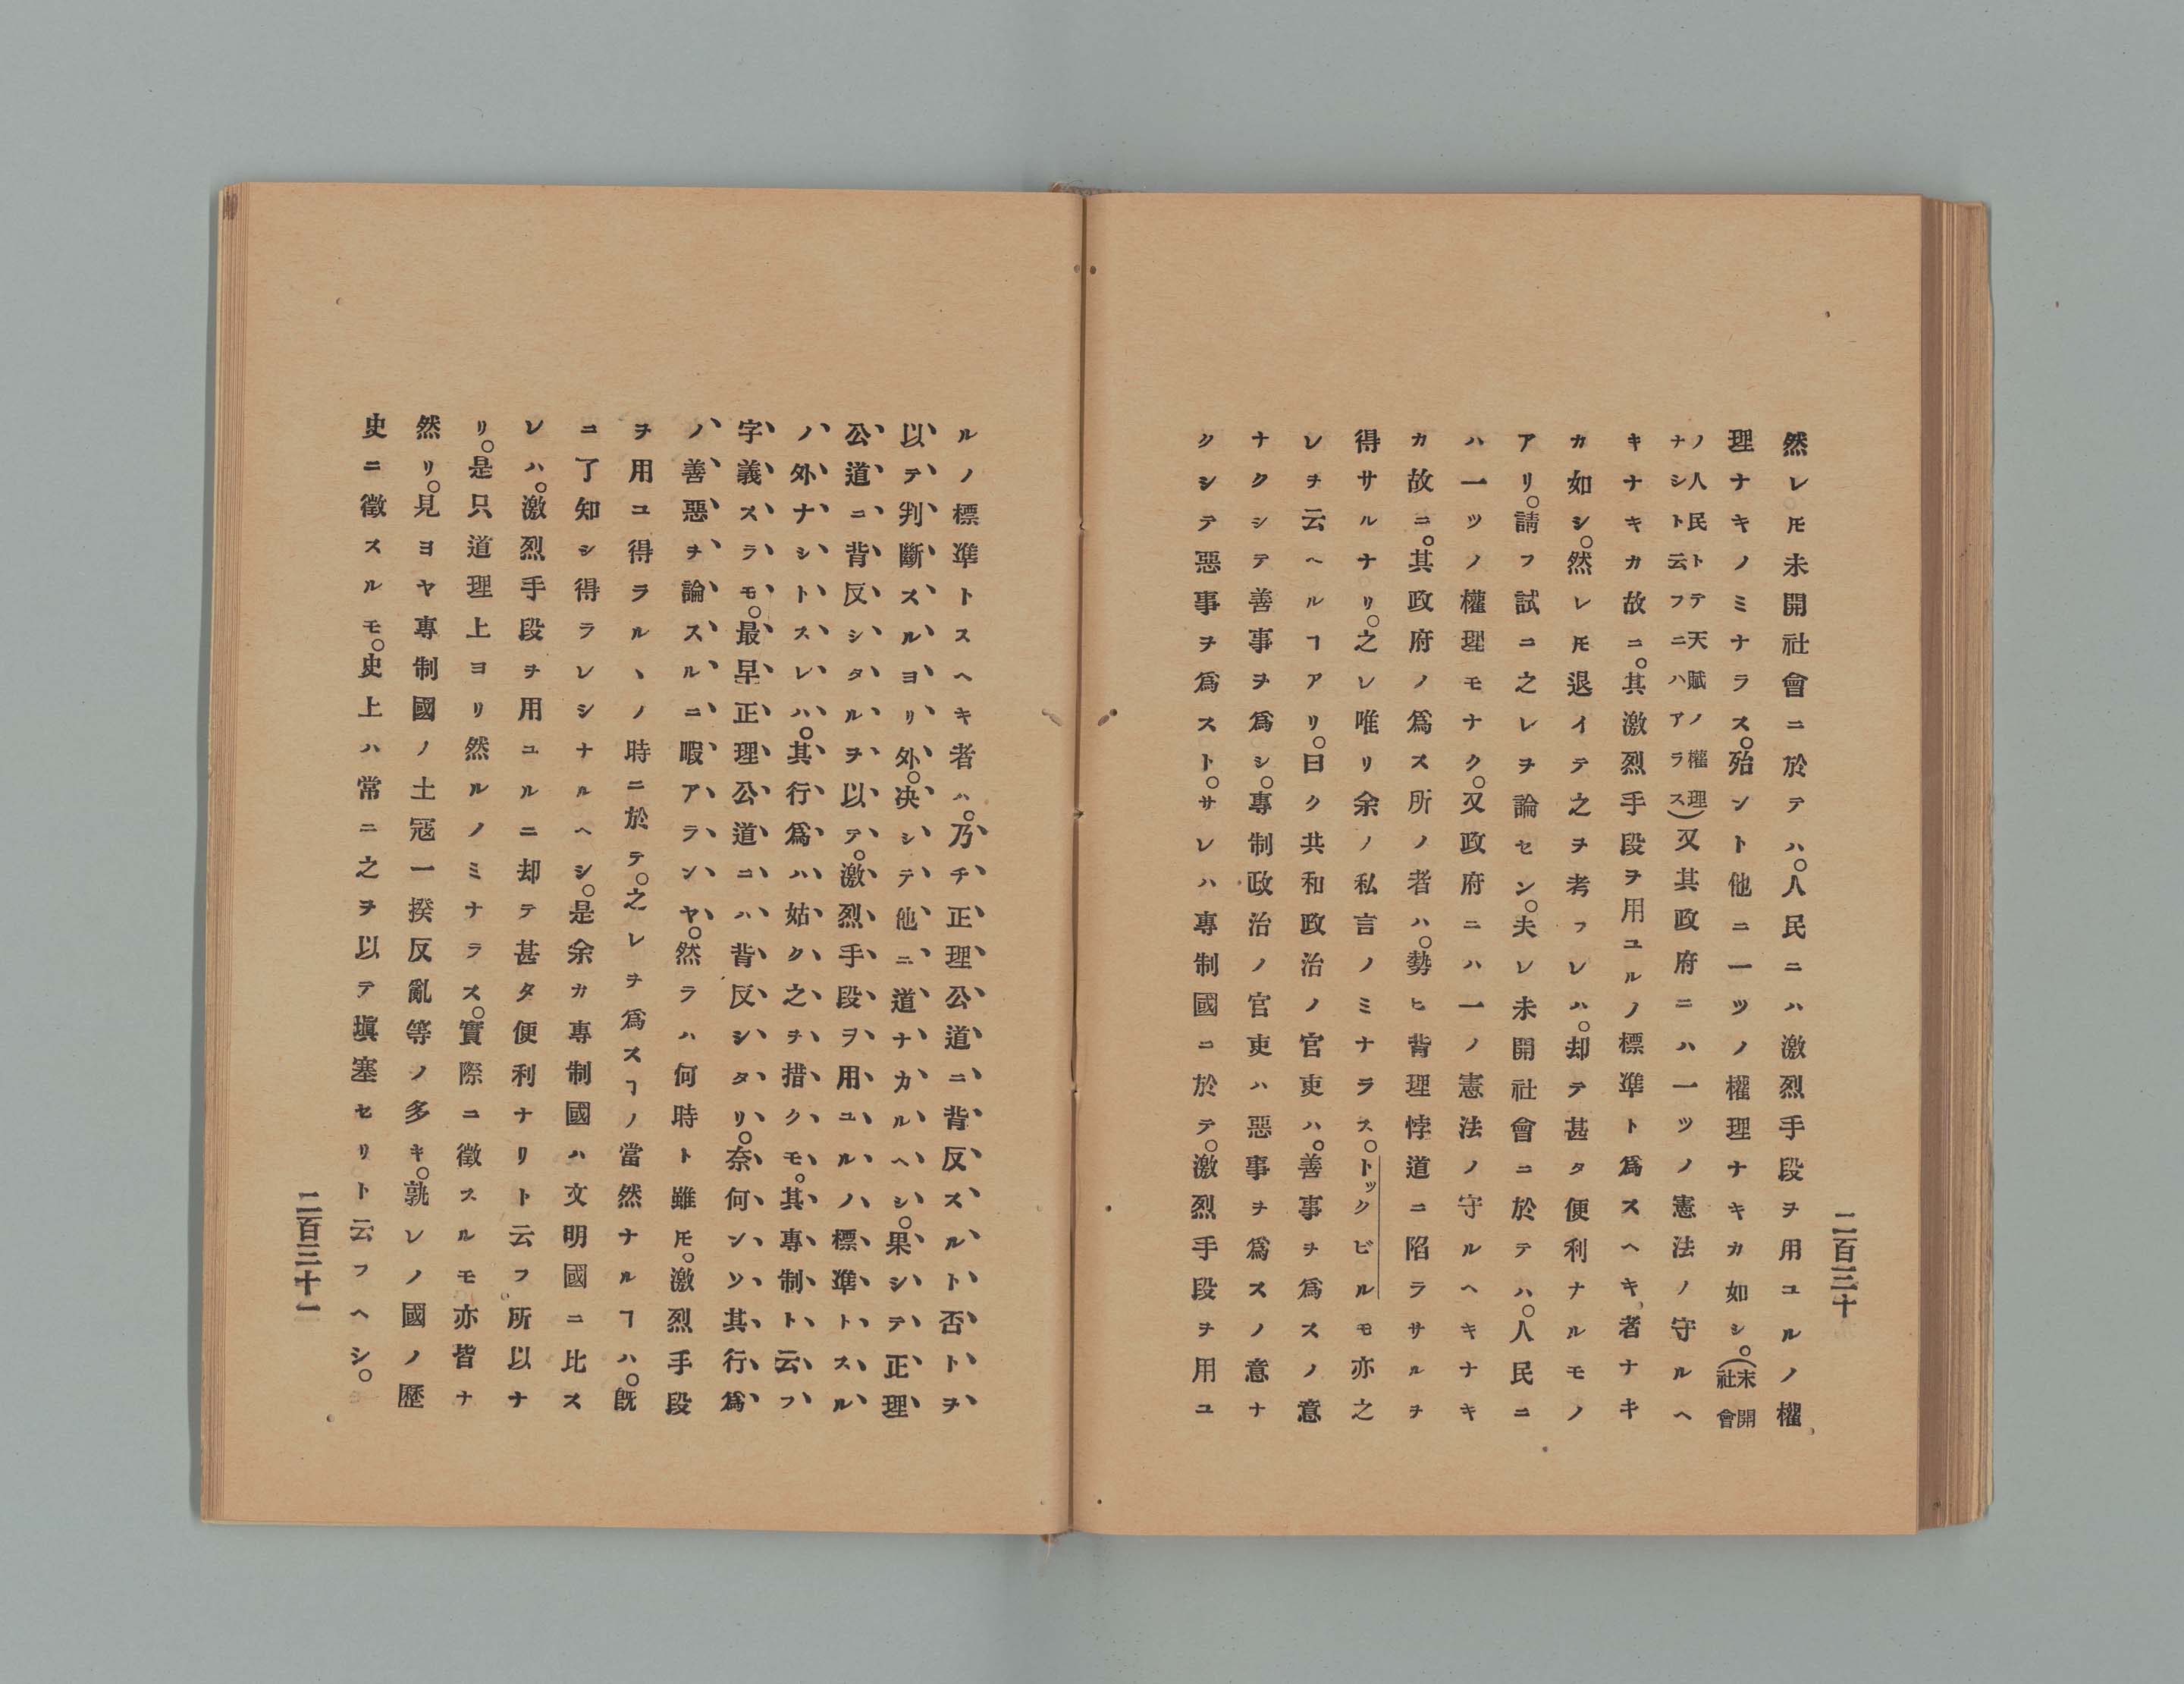 二百三十
然レ𪜈未開社會ニ於テハ。人民ニハ激烈手段ヲ用ユルノ權
理ナキノミナラス。殆ント他ニ一ツノ權理ナキカ如シ。(未開社會
ノ人民トテ天賦ノ權理ナシト云フニハアラス)又其政府ニハ一ツノ憲法ノ守ルヘ
キナキカ故ニ。其激烈手段ヲ用ユルノ標準ト爲スヘキ者ナキ
カ如シ。然レ𪜈退イテ之ヲ考フレハ。却テ甚タ便利ナルモノ
アリ。請フ試ニ之レヲ論セン。夫レ未開社會ニ於テハ。人民ニ
ハ一ツノ權理モナク。又政府ニハ一ノ憲法ノ守ルヘキナキ
カ故ニ。其政府ノ爲ス所ノ者ハ。勢ヒ背理悖道ニ陷ラサルヲ
得サルナリ。之レ唯リ余ノ私言ノミナラス。トックビルモ亦之
レヲ云ヘルヿアリ。曰ク共和政治ノ官吏ハ。善事ヲ爲スノ意
ナクシテ善事ヲ爲シ。專制政治ノ官吏ハ惡事ヲ爲スノ意ナ
クシテ惡事ヲ爲スト。サレハ專制國ニ於テ。激烈手段ヲ用ユ
ルノ標準トスヘキ者ハ。乃チ正理公道ニ背反スルト否トヲ
以テ判斷スルヨリ外。决シテ他ニ道ナカルヘシ。果シテ正理
公道ニ背反シタルヲ以テ。激烈手段ヲ用ユルノ標準トスル
ノ外ナシトスレハ。其行爲ハ姑ク之ヲ措クモ。其專制ト云フ
字義スラモ。最早正理公道ニハ背反シタリ。奈何ンソ其行爲
ノ善惡ヲ論スルニ暇アランヤ。然ラハ何時ト雖𪜈。激烈手段
ヲ用ユ得ラルヽノ時ニ於テ。之レヲ爲スヿノ當然ナルヿハ。既
ニ了知シ得ラレシナルヘシ。是余カ專制國ハ文明國ニ比ス
レハ。激烈手段ヲ用ユルニ却テ甚タ便利ナリト云フ所以ナ
リ。是只道理上ヨリ然ルノミナラス。實際ニ徵スルモ亦皆ナ
然リ。見ヨヤ專制國ノ土冦一揆反亂等ノ多キ。孰レノ國ノ歷
史ニ徵スルモ。史上ハ常ニ之ヲ以テ塡塞セリト云フヘシ。
二百三十一